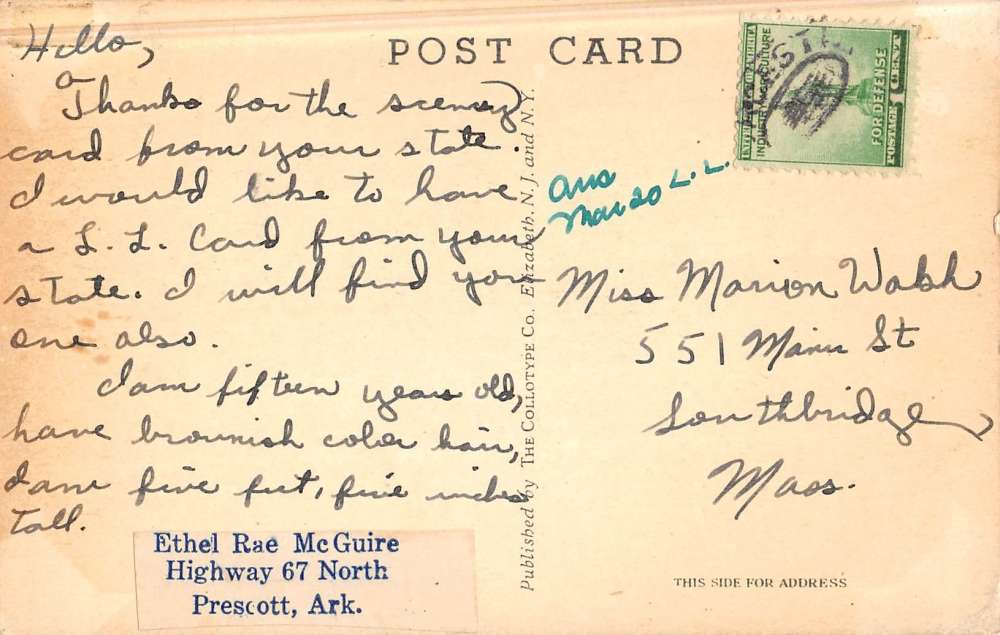 Hello,
Thanks for the scenery
card from your state.
I would like to have
a L. L. Card from your
state. I will find you
one also.
I am fifteen years old,
have brownish color hair,
I am five feet, five inches
tall.
Ethel Rae McGuire
Highway 67 North
Prescott, Ark.
POST CARD
Published by THE COLLOTYPE CO. Elizabeth, N. J. and N. Y.
UNITED STATES OF AMERICA
INDUSTRY AGRICULTURE
FOR DEFENSE
POSTAGE 1 CENT
ans
Mar 20 L. L.
Miss Marion Walsh
551 Main St
Southbridge,
Mass.
THIS SIDE FOR ADDRESS